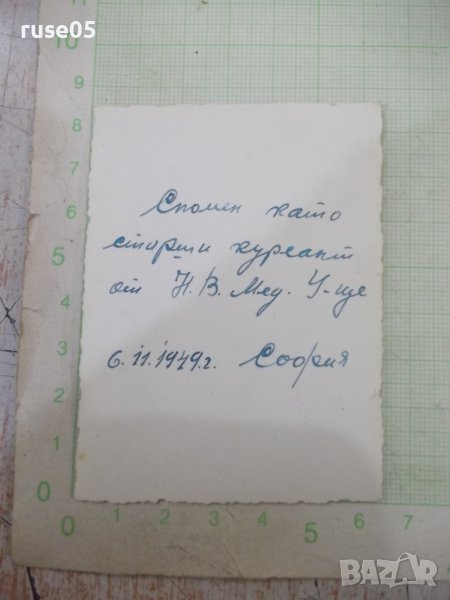 ruse05
Спомен като
старши курсант
от Н. В. Мед. У-ще
6. II. 1949 г. София
11
10
9
8
7
6
5
4
3
2
1
0
0 1 2 3 4 5 6 7
BAZAR